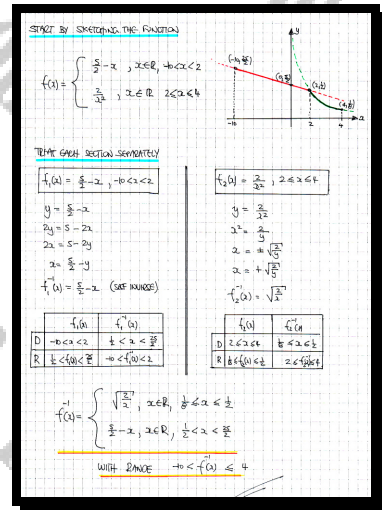 START BY SKETCHING THE FUNCTION
f(x) = { 5/2 - x , x∈ℝ, -10<x<2
2/x² , x∈ℝ 2≤x≤4
(-10, 25/2)
(0, 5/2)
(2, 1/2)
(4, 1/8)
y
x
-10
2
4
TREAT EACH SECTION SEPARATELY
f₁(x) = 5/2 - x , -10<x<2
y = 5/2 - x
2y = 5 - 2x
2x = 5 - 2y
x = 5/2 - y
f₁⁻¹(x) = 5/2 - x (SELF INVERSE)
f₁(x) f₁⁻¹(x)
D -10<x<2 1/2 < x < 25/2
R 1/2 < f₁(x) < 25/2 -10 < f₁⁻¹(x) < 2
f₂(x) = 2/x² , 2≤x≤4
y = 2/x²
x² = 2/y
x = ±√(2/y)
x = +√(2/y)
f₂⁻¹(x) = √(2/x)
f₂(x) f₂⁻¹(x)
D 2≤x≤4 1/8 ≤ x ≤ 1/2
R 1/8 ≤ f₂(x) ≤ 1/2 2 ≤ f₂⁻¹(x) ≤ 4
f⁻¹(x) = { √(2/x) , x∈ℝ, 1/8 ≤ x ≤ 1/2
5/2 - x, x∈ℝ, 1/2 < x < 25/2
WITH RANGE -10 < f⁻¹(x) ≤ 4